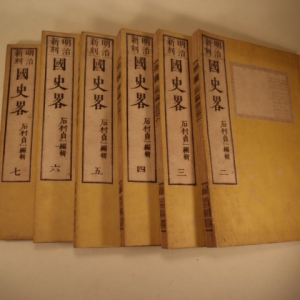 明治
新刻
國史畧
石村貞一編輯
二
明治
新刻
國史畧
石村貞一編輯
三
明治
新刻
國史畧
石村貞一編輯
四
明治
新刻
國史畧
石村貞一編輯
五
明治
新刻
國史畧
石村貞一編輯
六
明治
新刻
國史畧
石村貞一編輯
七